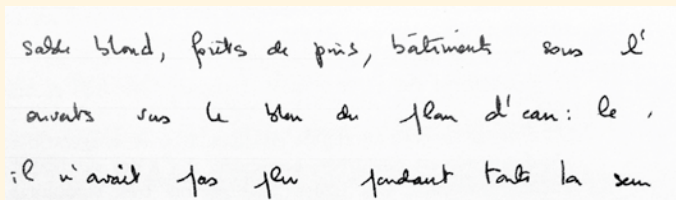 sable blond, forêts de pins, bâtiments sous l'
ouverts sur le bleu du plan d'eau : le
il n'avait pas plu pendant toute la sem